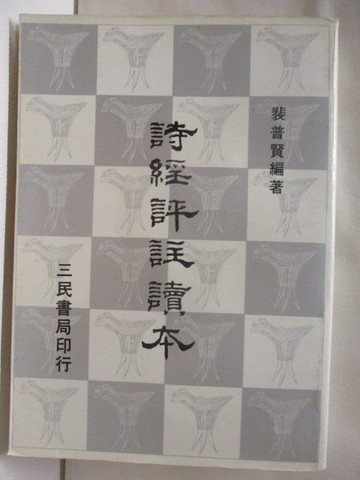 裴普賢編著
詩經評註讀本
三民書局印行